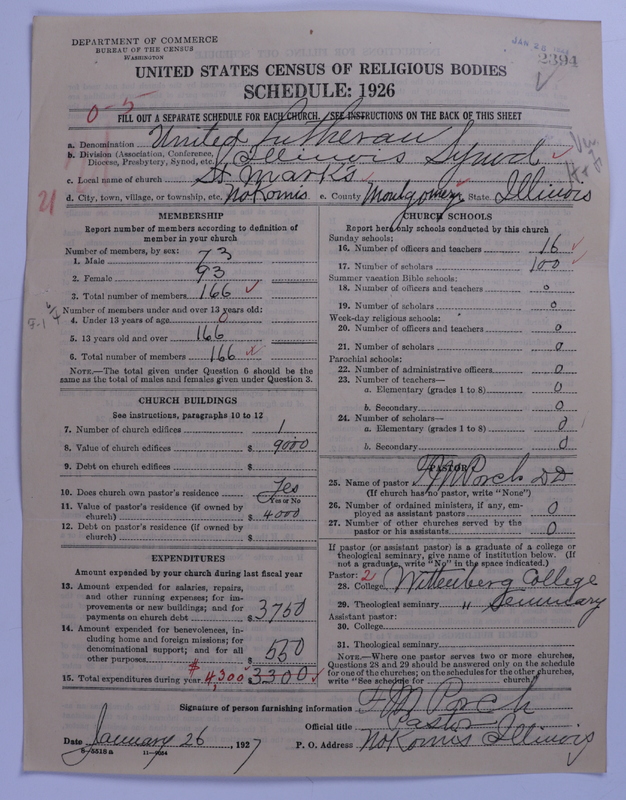 DEPARTMENT OF COMMERCE
BUREAU OF THE CENSUS
WASHINGTON
JAN 26
2394
UNITED STATES CENSUS OF RELIGIOUS BODIES
SCHEDULE: 1926
0-5
FILL OUT A SEPARATE SCHEDULE FOR EACH CHURCH. SEE INSTRUCTIONS ON THE BACK OF THIS SHEET
a. Denomination United Lutheran
b. Division (Association, Conference, Diocese, Presbytery, Synod, etc. Illinois Synod
c. Local name of church St Mark's
d. City, town, village, or township, etc. Nokomis e. County Montgomery State Illinois
21
MEMBERSHIP
Report number of members according to definition of
member in your church
Number of members, by sex:
1. Male 73
2. Female 93
3. Total number of members 166
Number of members under and over 13 years old:
4. Under 13 years of age 0
5. 13 years old and over 166
6. Total number of members 166
NOTE.—The total given under Question 6 should be the
same as the total of males and females given under Question 3.
CHURCH BUILDINGS
See instructions, paragraphs 10 to 12
7. Number of church edifices 1
8. Value of church edifices $ 9000
9. Debt on church edifices $
10. Does church own pastor's residence Yes
Yes or No
11. Value of pastor's residence (if owned by
church) $ 4000
12. Debt on pastor's residence (if owned by
church) $
EXPENDITURES
Amount expended by your church during last fiscal year
13. Amount expended for salaries, repairs,
and other running expenses; for im-
provements or new buildings; and for
payments on church debt $ 3750
14. Amount expended for benevolences, in-
cluding home and foreign missions; for
denominational support; and for all
other purposes $ 550
15. Total expenditures during year $ 4,300 3300
CHURCH SCHOOLS
Report here only schools conducted by this church
Sunday schools:
16. Number of officers and teachers 16
17. Number of scholars 100
Summer vacation Bible schools:
18. Number of officers and teachers 0
19. Number of scholars 0
Week-day religious schools:
20. Number of officers and teachers 0
21. Number of scholars 0
Parochial schools:
22. Number of administrative officers 0
23. Number of teachers—
a. Elementary (grades 1 to 8) 0
b. Secondary 0
24. Number of scholars—
a. Elementary (grades 1 to 8) 0
b. Secondary 0
PASTOR
25. Name of pastor Porch DD
(If church has no pastor, write "None")
26. Number of ordained ministers, if any, em-
ployed as assistant pastors 0
27. Number of other churches served by the
pastor or his assistants 0
If pastor (or assistant pastor) is a graduate of a college or
theological seminary, give name of institution below. (If
not a graduate, write "No" in the space indicated.)
Pastor: 2
28. College Wittenberg College
29. Theological seminary " Seminary
Assistant pastor:
30. College
31. Theological seminary
NOTE.—Where one pastor serves two or more churches,
Questions 28 and 29 should be answered only on the schedule
for one of the churches; on the schedules for the other churches,
write "See schedule for church."
Signature of person furnishing information Porch
Official title Pastor
Date January 26, 1927 P. O. Address Nokomis Illinois
8-5518a 11-9084